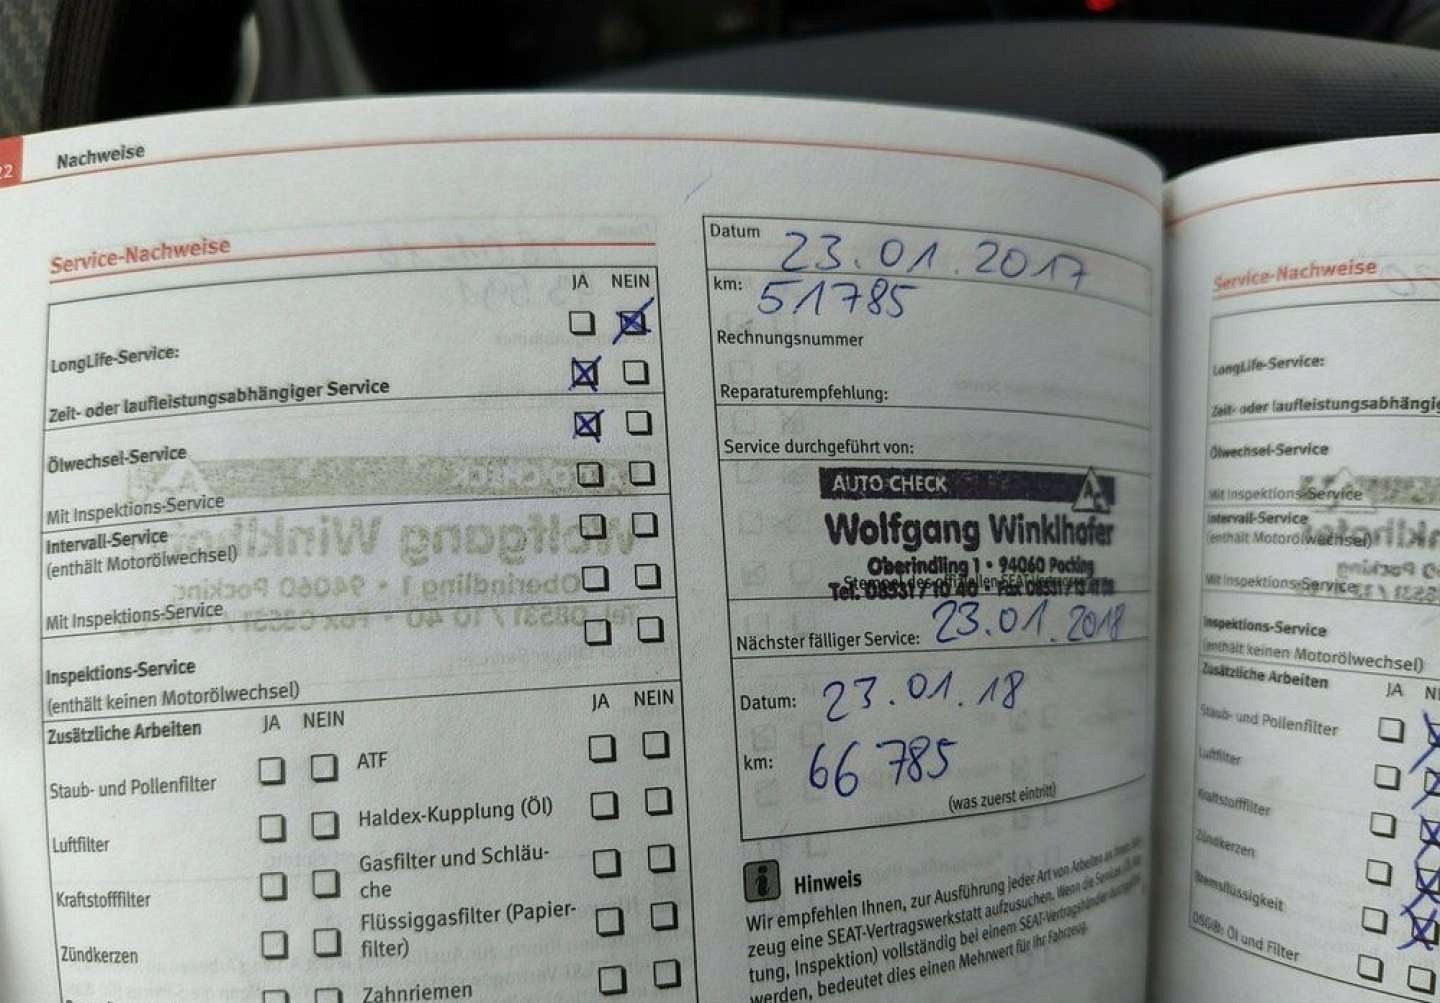 22 Nachweise
Service-Nachweise
JA NEIN
LongLife-Service:
Zeit- oder laufleistungsabhängiger Service
Ölwechsel-Service
Mit Inspektions-Service
Intervall-Service
(enthält Motorölwechsel)
Mit Inspektions-Service
Inspektions-Service
(enthält keinen Motorölwechsel)
JA NEIN
Zusätzliche Arbeiten JA NEIN
Staub- und Pollenfilter
Luftfilter
Kraftstofffilter
Zündkerzen
ATF
Haldex-Kupplung (Öl)
Gasfilter und Schläu-
che
Flüssiggasfilter (Papier-
filter)
Zahnriemen
Datum 23.01.2017
km: 51785
Rechnungsnummer
Reparaturempfehlung:
Service durchgeführt von:
AUTO CHECK AC
Wolfgang Winklhofer
Oberindling 1 • 94060 Pocking
Stempel des offiziellen SEAT-
Tel. 08531 / 10 40 • Fax 08531 /
Nächster fälliger Service: 23.01.2018
Datum: 23.01.18
km: 66 785
(was zuerst eintritt)
i Hinweis
Wir empfehlen Ihnen, zur Ausführung jeder Art von Arbeiten an Ihrem
zeug eine SEAT-Vertragswerkstatt aufzusuchen. Wenn die Service
tung, Inspektion) vollständig bei einem SEAT-Vertragshändler durchgeführt
werden, bedeutet dies einen Mehrwert für Ihr Fahrzeug.
Service-Nachweise
LongLife-Service:
Zeit- oder laufleistungsabhängig
Ölwechsel-Service
Mit Inspektions-Service
Intervall-Service
(enthält Motorölwechsel)
Mit Inspektions-Service
Inspektions-Service
(enthält keinen Motorölwechsel)
Zusätzliche Arbeiten JA
Staub- und Pollenfilter
Luftfilter
Kraftstofffilter
Zündkerzen
Bremsflüssigkeit
DSG®: Öl und Filter